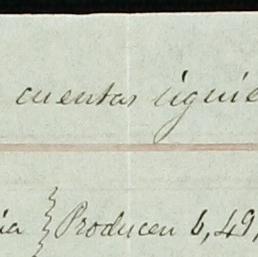 cuentas siguie
ia } Producen 6,49,